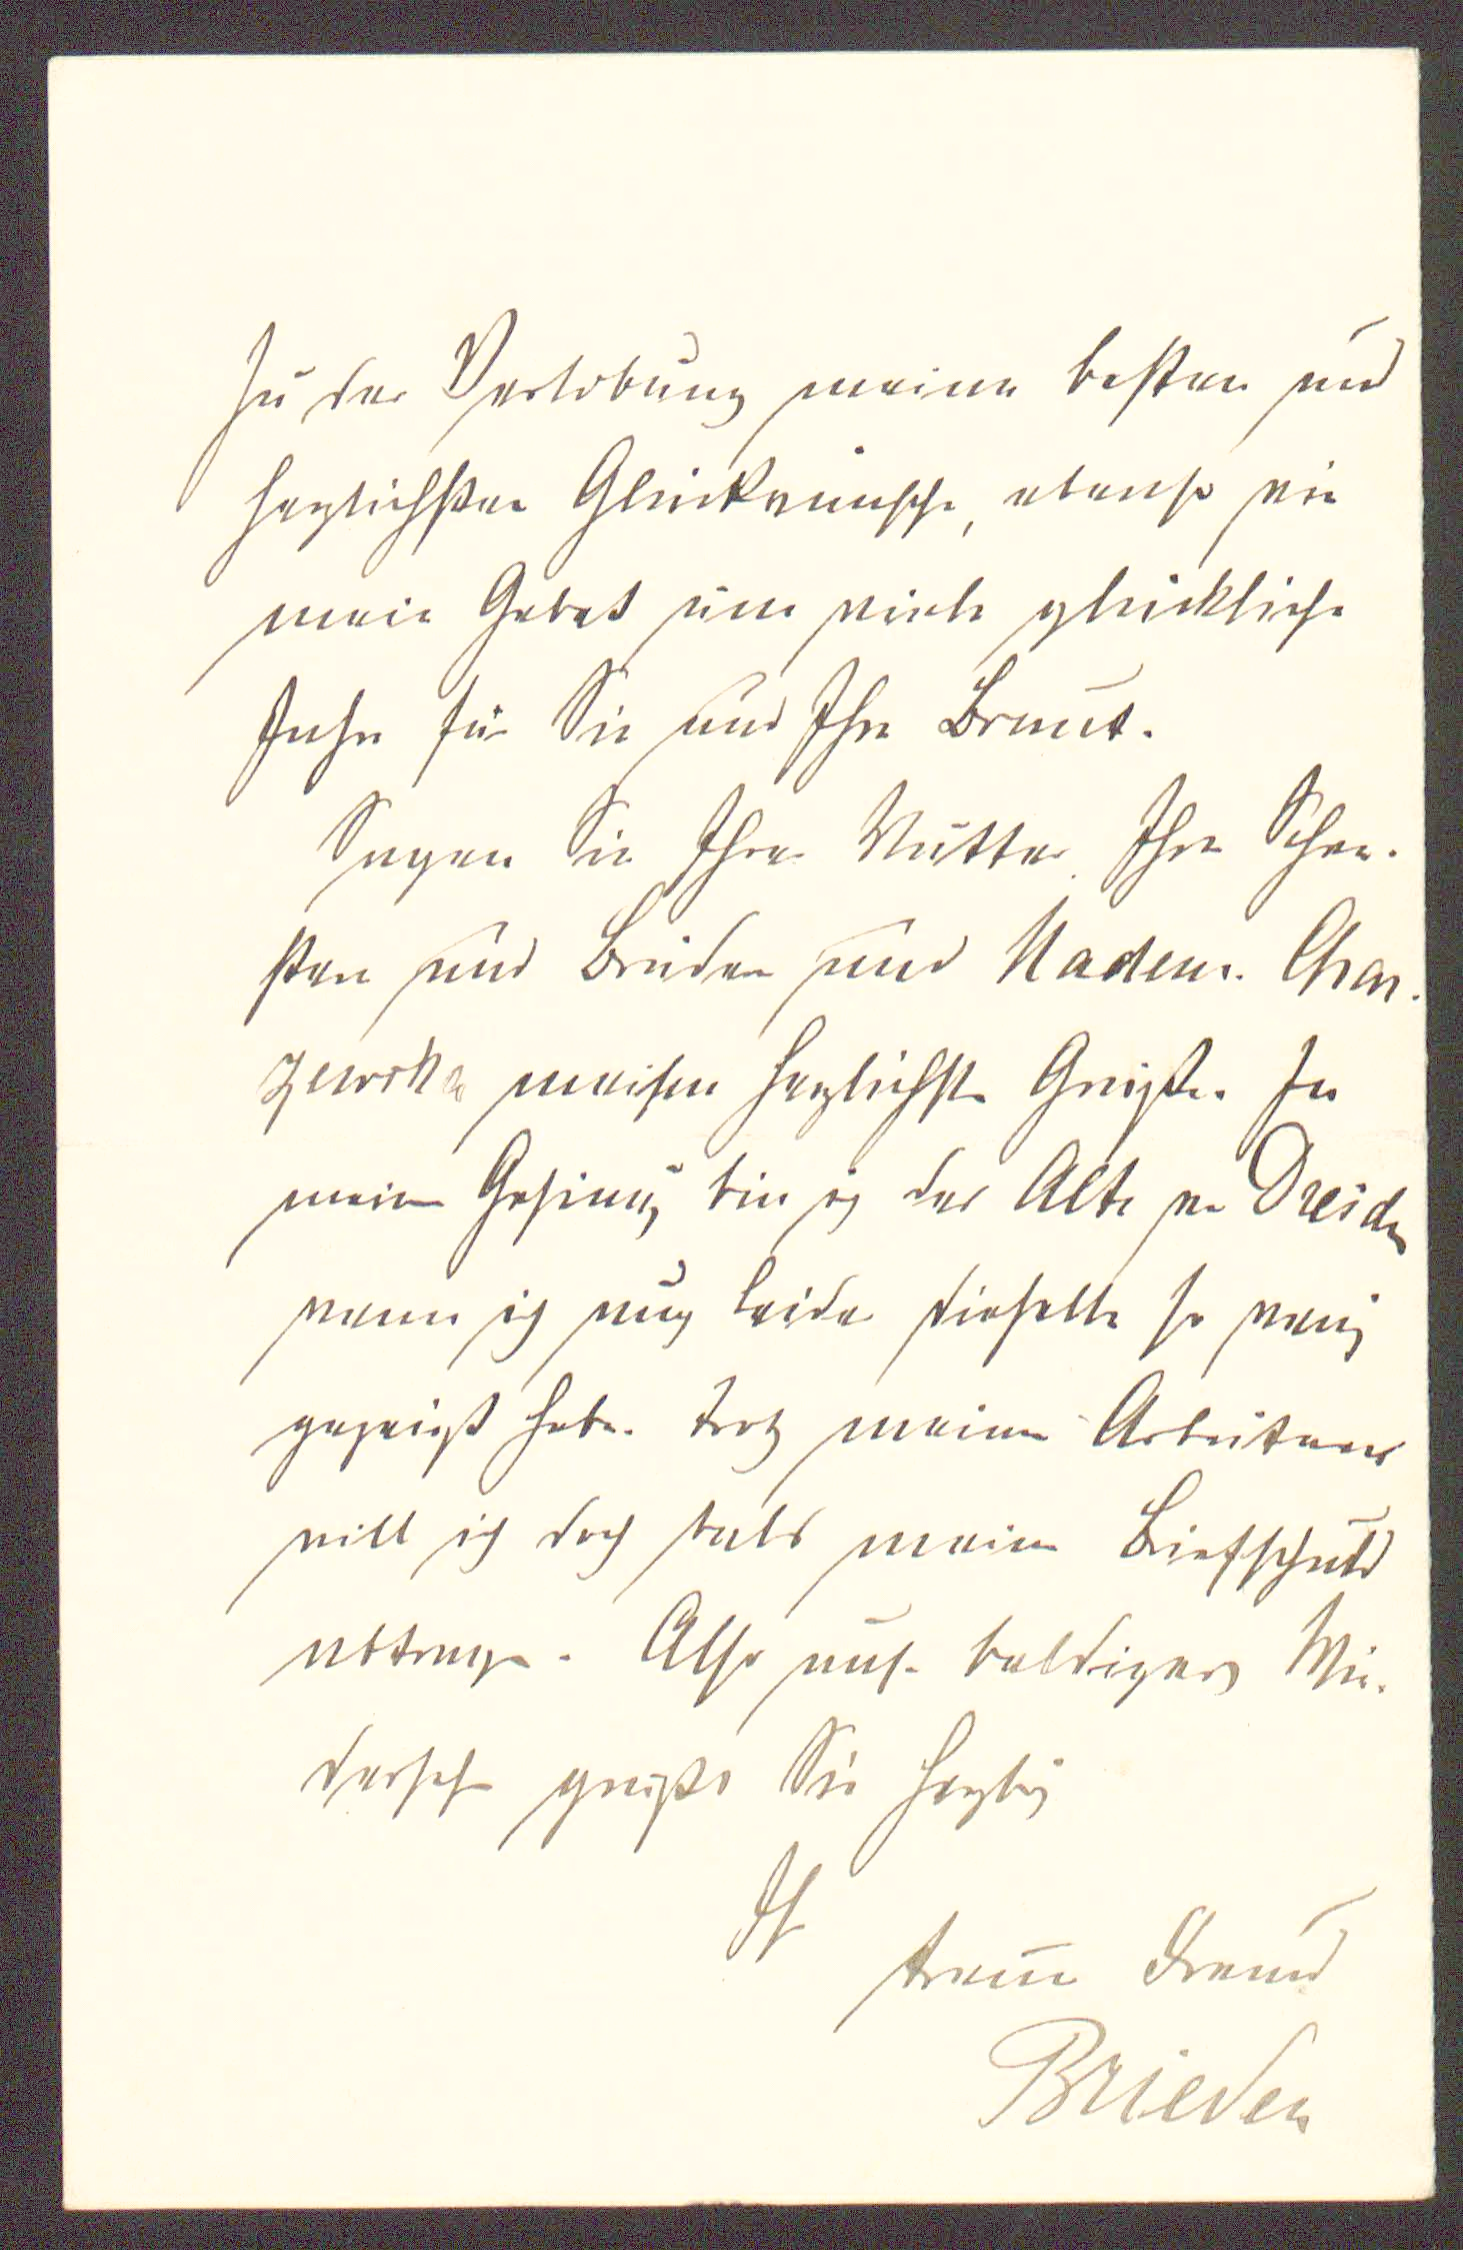 Zu der Verlobung meine besten und
herzlichsten Glückwünsche, ebenso wie
mein Gebet um viele glückliche
Jahre für Sie und Ihre Braut.
Sagen Sie Ihrer Mutter, Ihren Schwe-
stern und Brüdern und Madem. Char-
zewska meine herzlichsten Grüße. In
meiner Gesinnung bin ich der Alte von Dresden
wenn ich auch leider dieselbe so wenig
gezeigt habe. Trotz meiner Arbeiten
will ich doch bald meine Briefschuld
abtragen. Also auf baldiges Wie-
dersehen grüßt Sie herzlich
Ihr
treuer Freund
Brieden